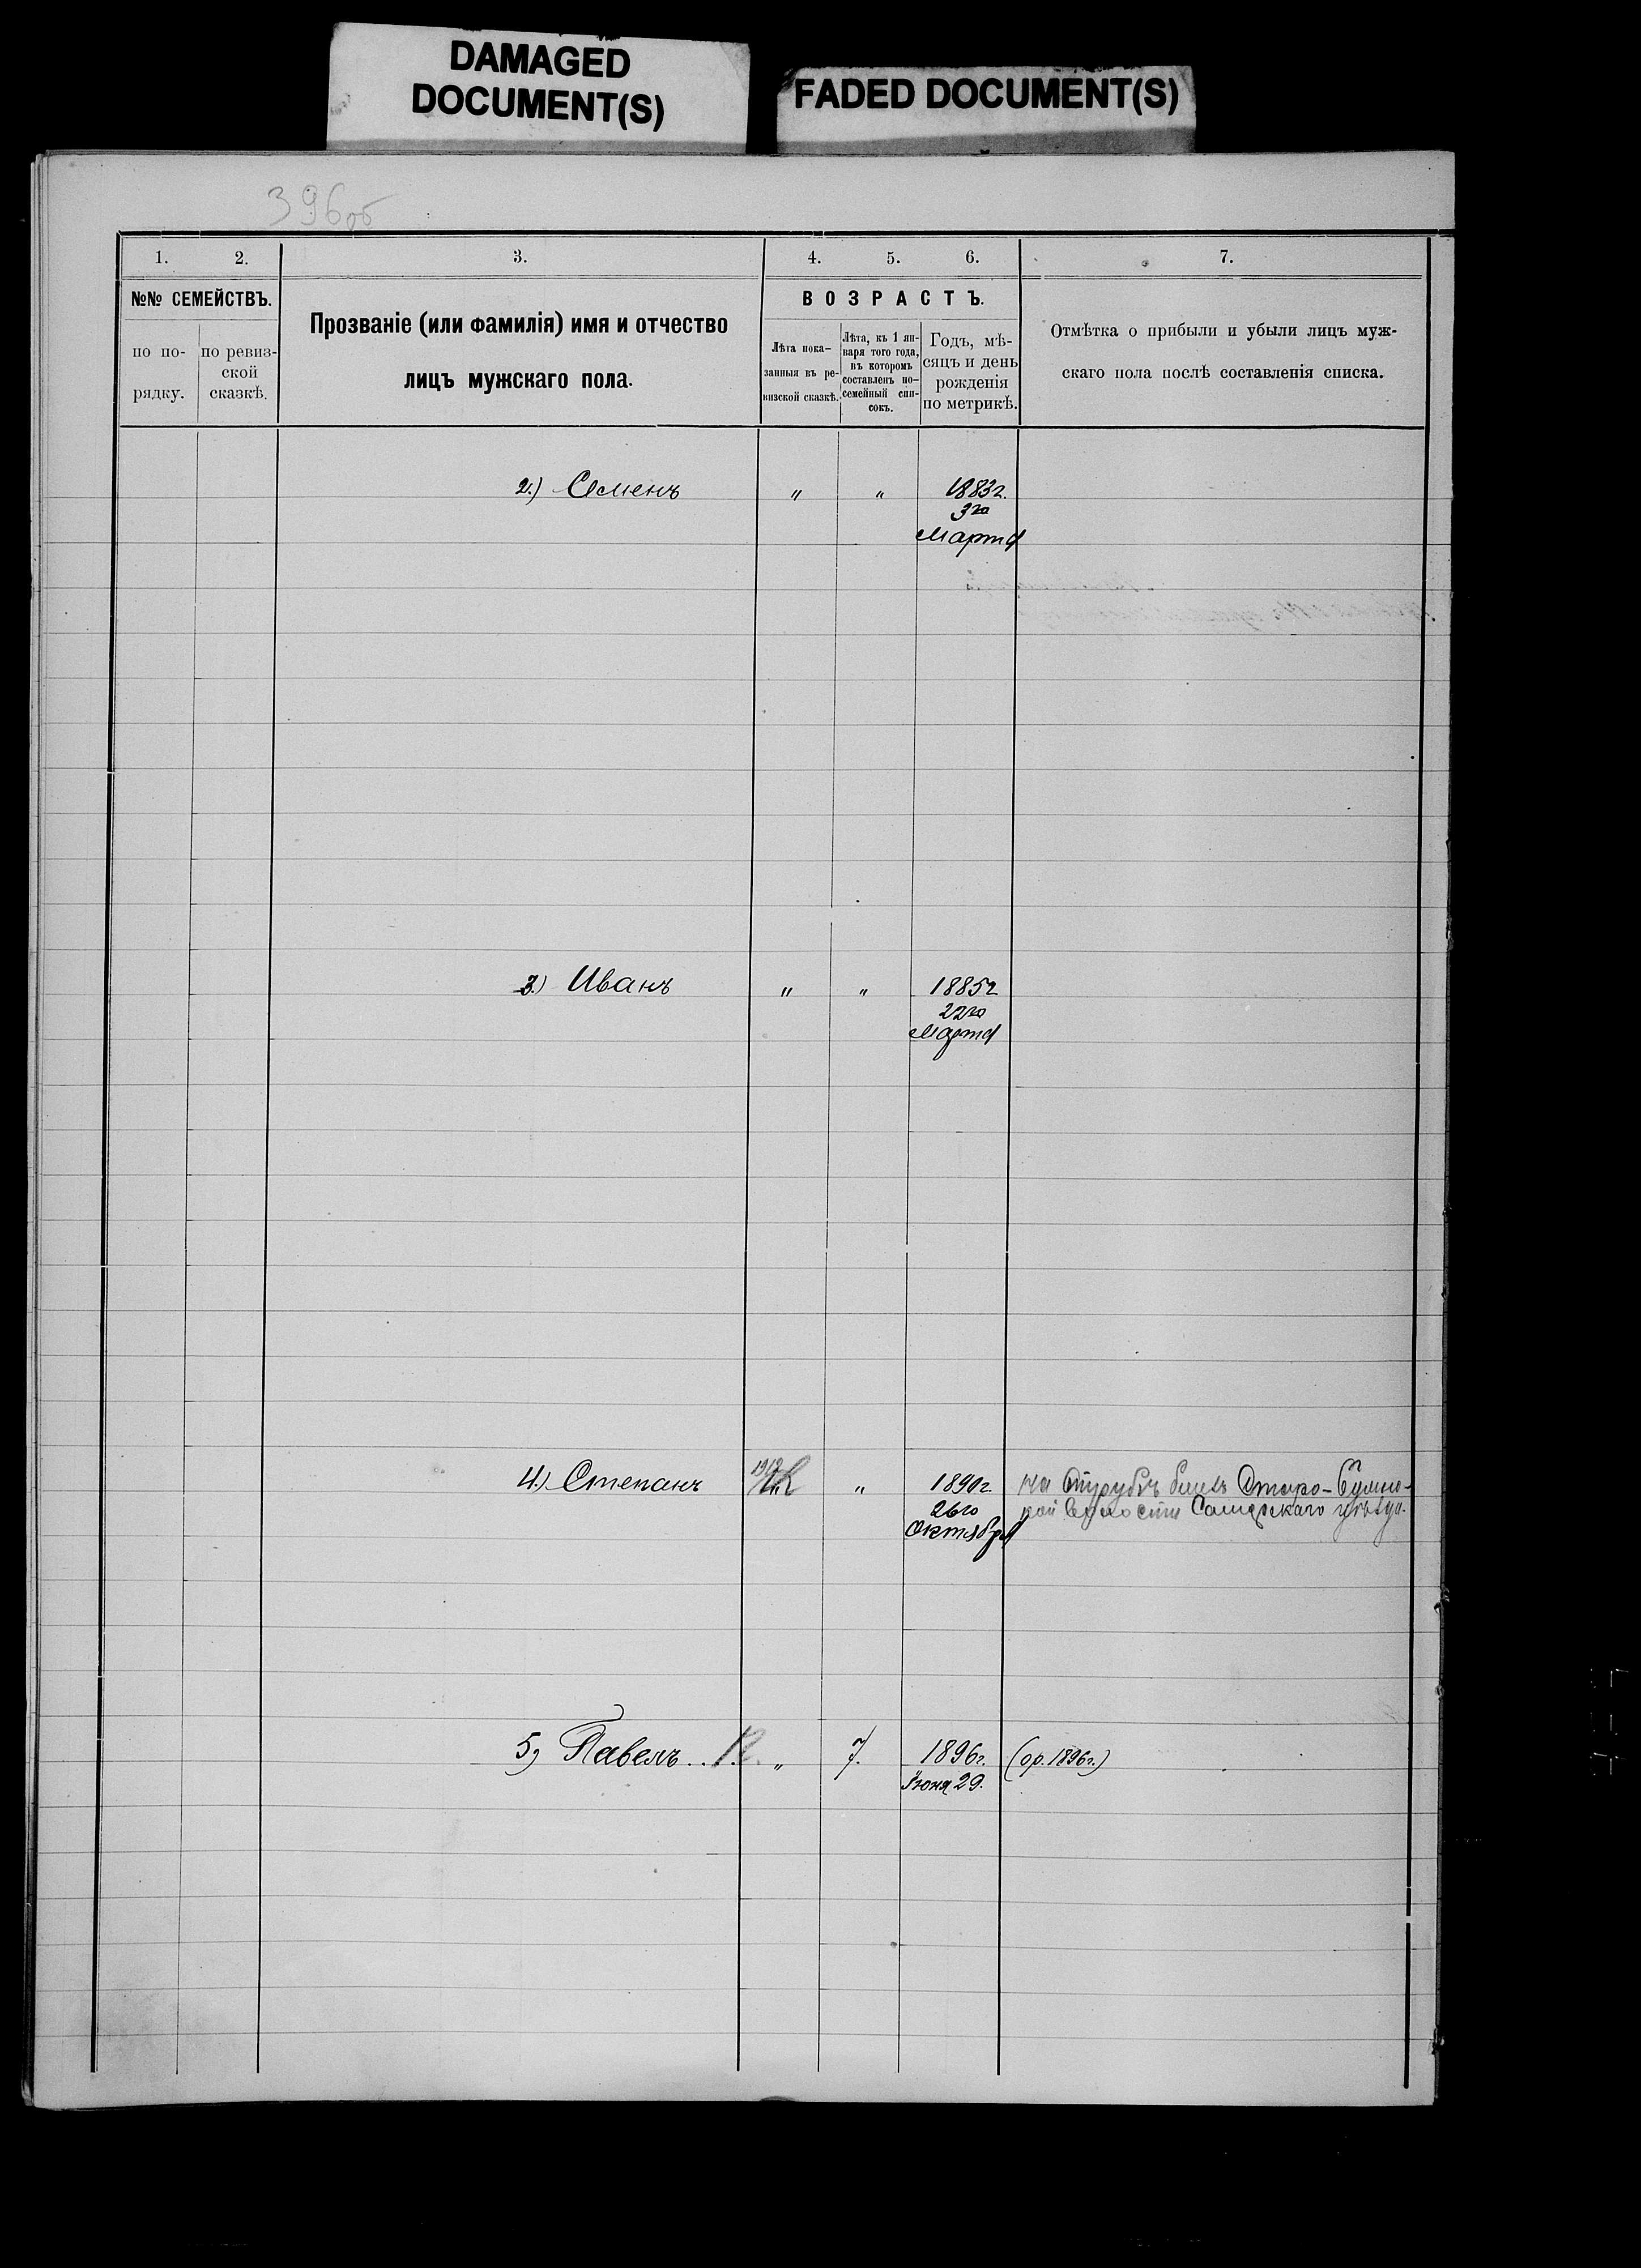 DAMAGED
DOCUMENT(S)
FADED DOCUMENT(S)
396об
1. 2. 3. 4. 5. 6. 7.
№№ СЕМЕЙСТВЪ.
по по-
рядку.
по ревиз-
ской
сказкѣ.
Прозваніе (или фамилія) имя и отчество
лицъ мужскаго пола.
ВОЗРАСТЪ.
Лѣта пока-
занныя въ ре-
визской сказкѣ.
Лѣта, къ 1 ян-
варя того года,
въ которомъ
составленъ по-
семейный спи-
сокъ.
Годъ, мѣ-
сяцъ и день
рожденія
по метрикѣ.
Отмѣтка о прибыли и убыли лицъ муж-
скаго пола послѣ составленія списка.
2.) Семенъ " " 1883г.
3го
Марта
3.) Иванъ " " 1885г
22го
Марта
4.) Степанъ 1912 " 1890г на Отрубѣ Старо-
26го Самарскаго уѣзда.
Октября
5) Павелъ . . " 7. 1896г. (ор. 1896г.)
Іюня 29.